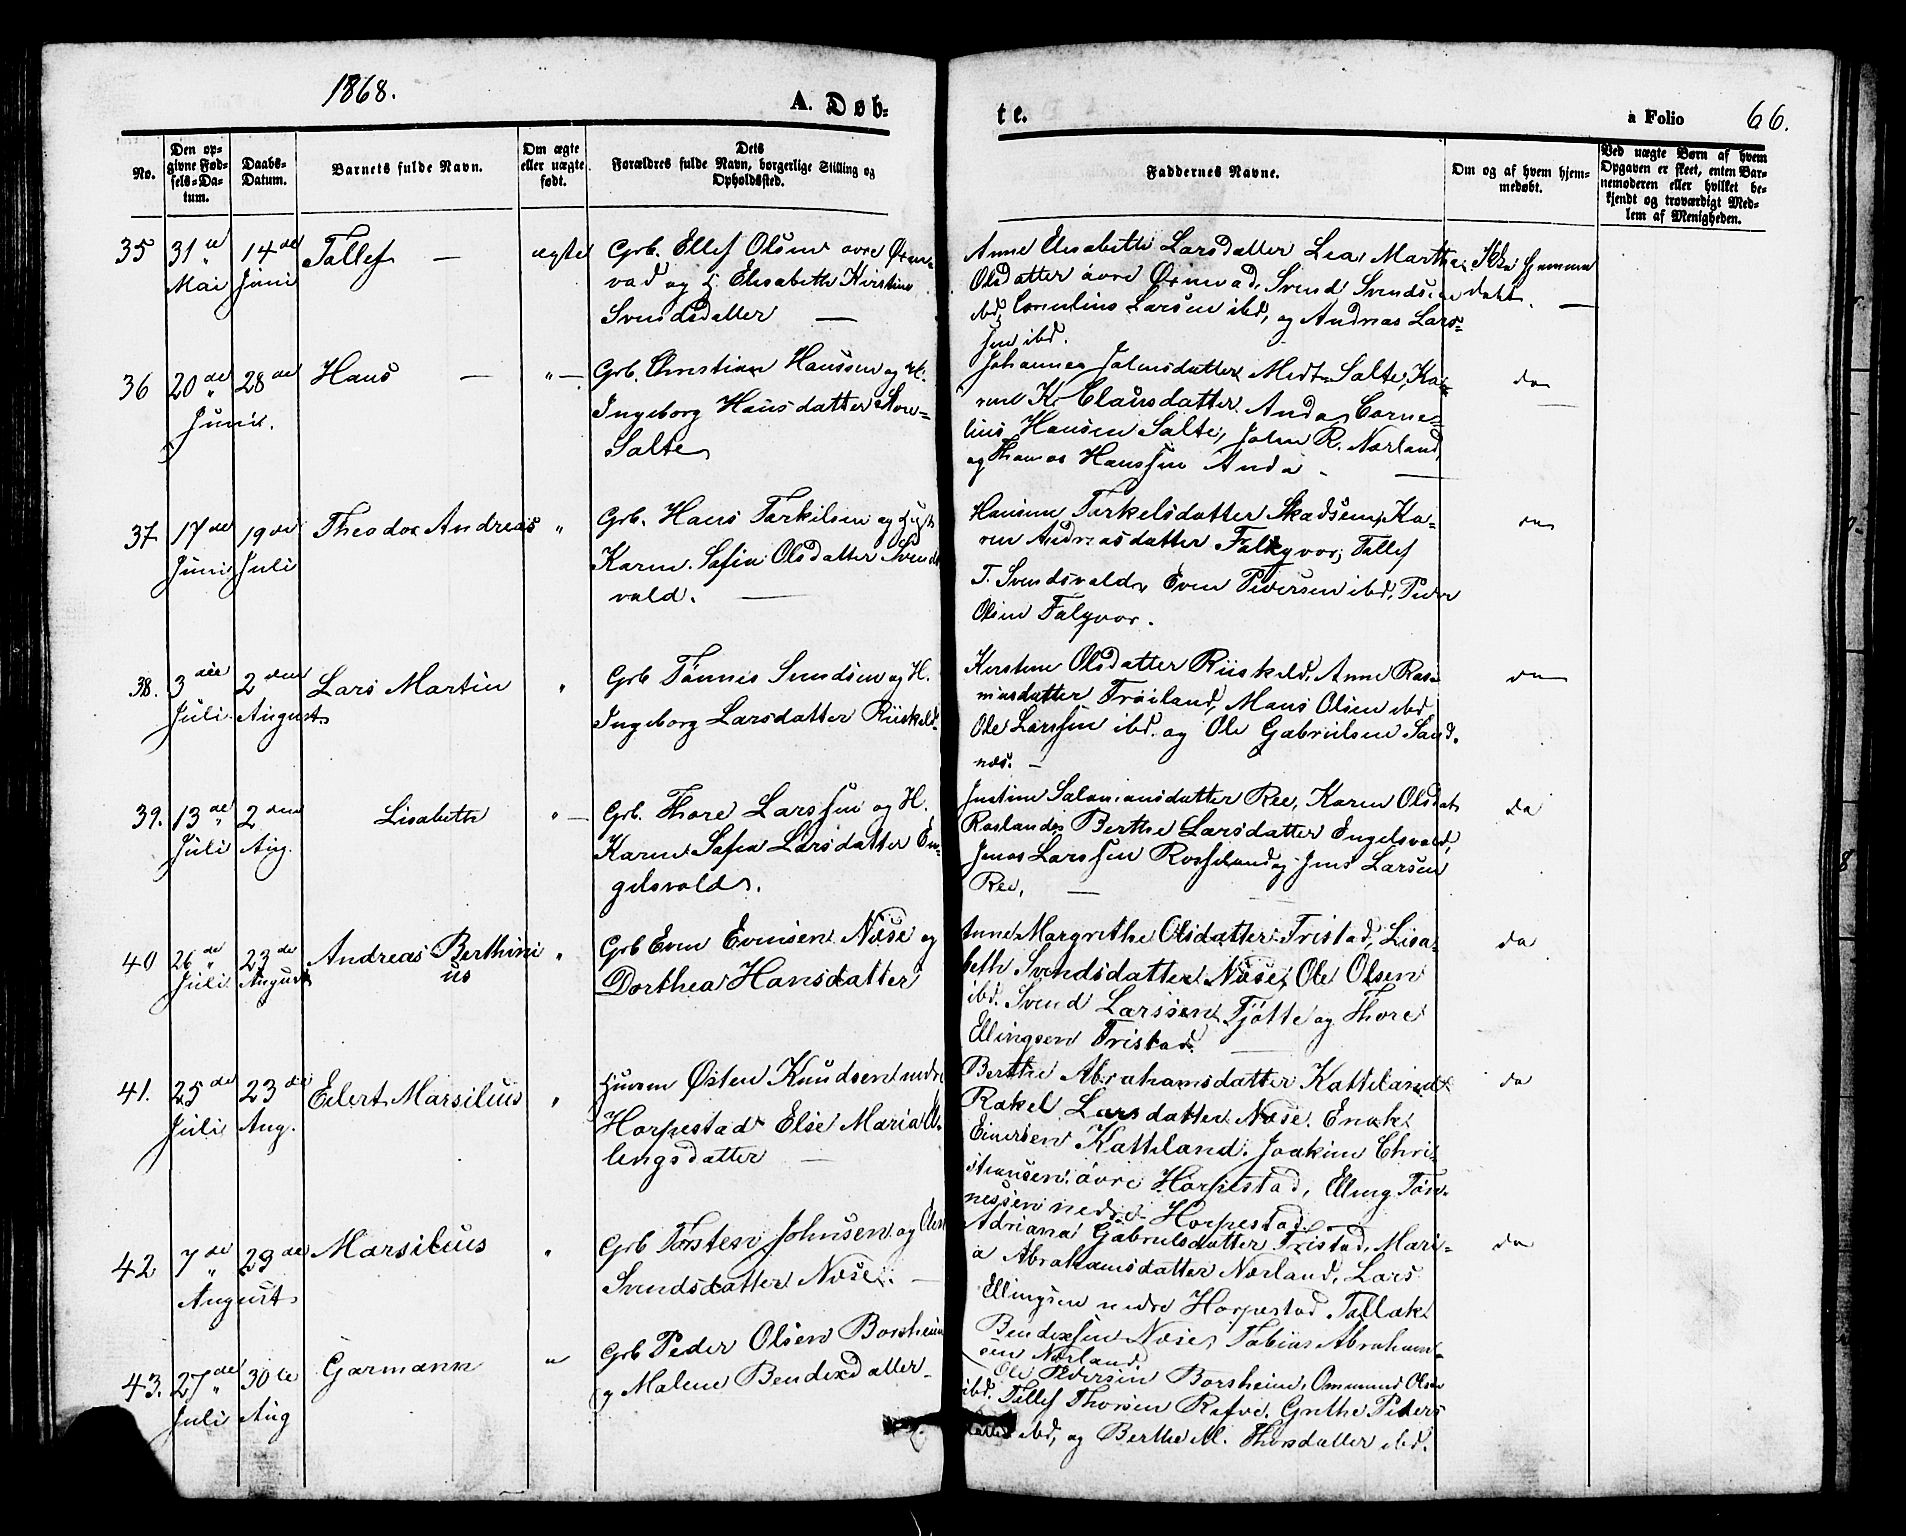 1868.
A. Døb-
te.
à Folio 66.
No.
Den op-
givne Fød-
sels-Da-
tum.
Daabs-
Datum.
Barnets fulde Navn.
Om ægte
eller uægte
født.
Dets
Forældres fulde Navn, borgerlige Stilling og
Opholdssted.
Faddernes Navne.
Om og af hvem hjem-
medøbt.
Ved uægte Børn af hvem
Opgaven er skeet, enten Bar-
nemoderen eller hvilket be-
kjendt og troværdigt Med-
lem af Menigheden.
35 31te Mai
14de Juni
Tallef —
ægte
Grb. Ellef Olsen øvre
vad og H. Elisabeth Kirstine
Svendsdatter —
Anne Elisabeth Larsdatter Lea, Martha
Olsdatter øvre Svend Svendsen
ibd, Cornelius Larsen ibd, og Andreas Lars-
sen ibd.
Ikke hjemme
døbt. —
36 20de Junii.
28de
Hans —
"—
Grb. Christian Hanssen og H.
Ingeborg Hansdatter
Salte
Johanne Johnsdatter Salte, Ka-
rene K. Clausdatter Anda, Corne-
lius Hansen Salte, John R. Nærland,
og Thomas Hanssen Anda —
do
37 17de Juni
19de Juli
Theodor Andreas
"
Grb. Hans Tarkilsen og
Karen Sofia Olsdatter Svends
vald. —
Hansine Tarkelsdatter Skadsem, Ka-
ren Andreasdatter Tallef
T. Svendsvald, Even Pedersen ibd, Peder
Olsen
do
38. 3die Juli
2den August
Lars Martin
"
Grb Tønnes Svendsen og H.
Ingeborg Larsdatter Riiskeld.
Kirstine Olsdatter Riiskeld, Anne Ras-
musdatter Frøiland, Mans Olsen ibd
Ole Larssen ibd. og Ole Gabrielsen Sand-
næs. —
do
39. 13de Juli
2den Aug.
Lisabeth
"—
Grb. Thore Larssen og H.
Karen Sofia Larsdatter En-
gelsvold.
Justine Salamonsdatter Ree, Karen Olsdat
Berthe Larsdatter Engelsvold,
Jonas Larssen Rosseland og Jens Larsen
Ree, —
do
40 26de Juli
23de August
Andreas Berthini
us
"
Grb Even Evensen Næse og
Dorthea Hansdatter
Anne Margrethe Olsdatter Tristad, Lisa-
beth Svendsdatter Næse, Ole Olsen
ibd. Svend Larssen Tjøtte og Thore
Ellingsen Tristad. —
do
41. 25de Juli
23de Aug.
Eilert Marsilius
"
Huusm Østen Knudsen nedre
Horpestad Else Maria El-
lingsdatter —
Berthe Abrahamsdatter Katteland
Rakel Larsdatter Næse. Enok
Einersen Katteland. Joakim Chri-
stiansen øvre Horpestad, Elling Tøn-
nessen nedre Horpestad.
do
42 7de August
29de
Marsilius
"
Grb Torsten Johnsen og
Svendsdatter Næse. —
Adriana Gabrielsdatter Tristad, Mari-
a Abrahamsdatter Nærland, Lars
Ellingsen nedre Horpestad. Tallak
Bendixsen Næse, Tobias Abraham-
sen Nærland.
do
43. 27de Juli
30te Aug
Garmann
"
Grb Peder Olsen Borsheim
og Malene Bendixdatter
Ole Pedersen Borsheim, Ommund Olsen
ibd. Tallef Thorsen Refve. Grethe Peders
datter ibd, og Berthe M. Thorsdatter ibd.